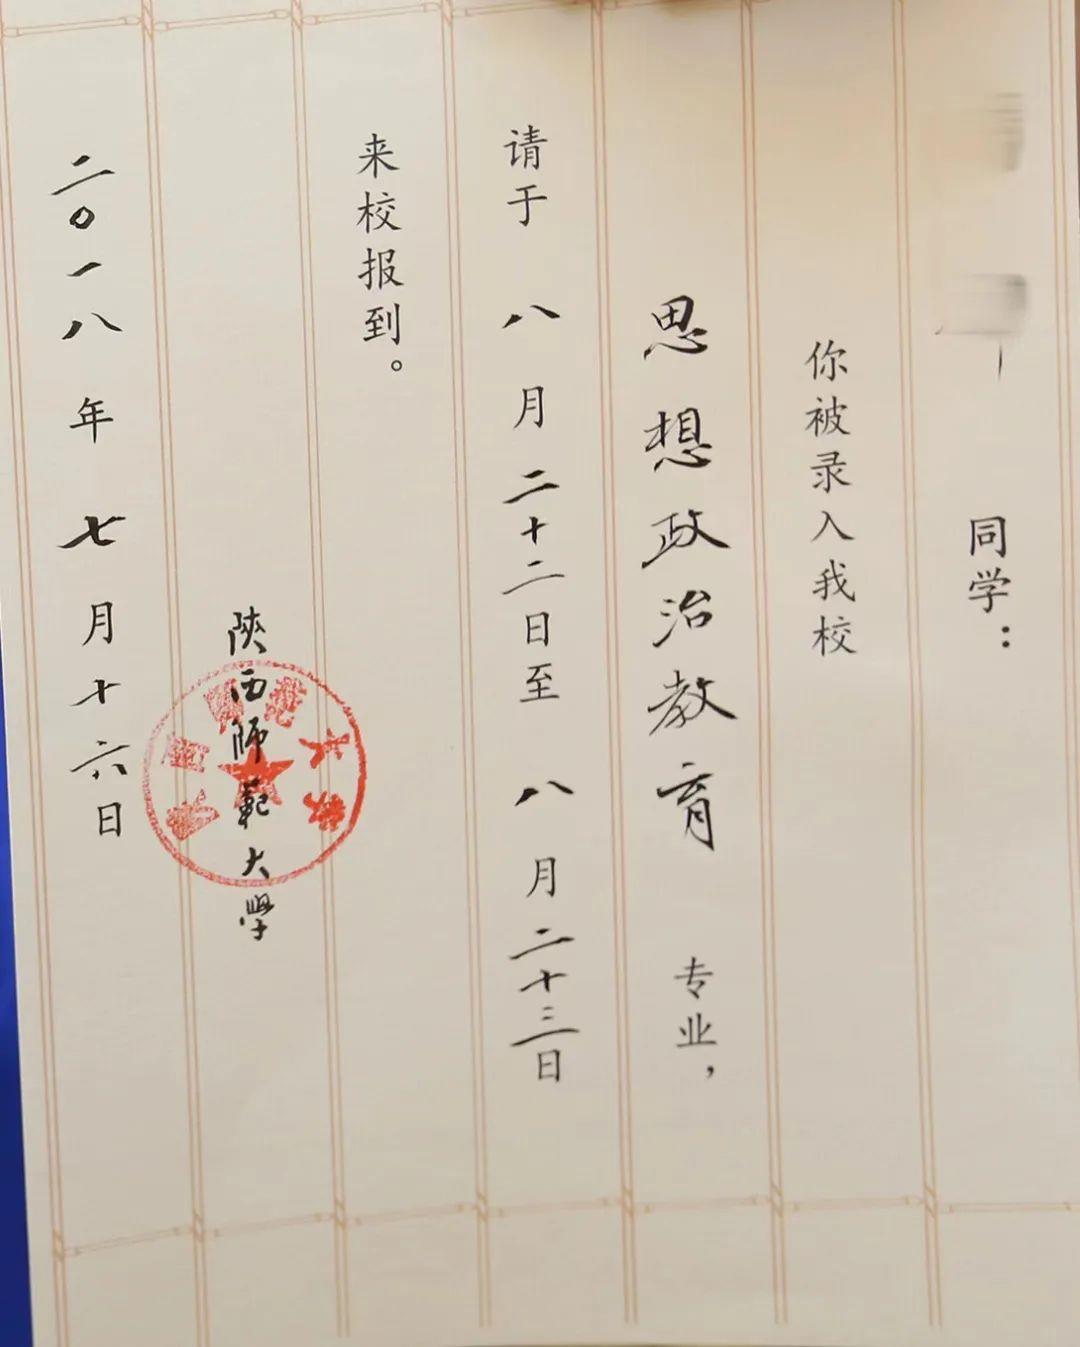 同学：
你被录入我校
思想政治教育 专业，
请于 八月二十二日至 八月二十三日
来校报到。
陝西師範大學
二〇一八年七月十六日